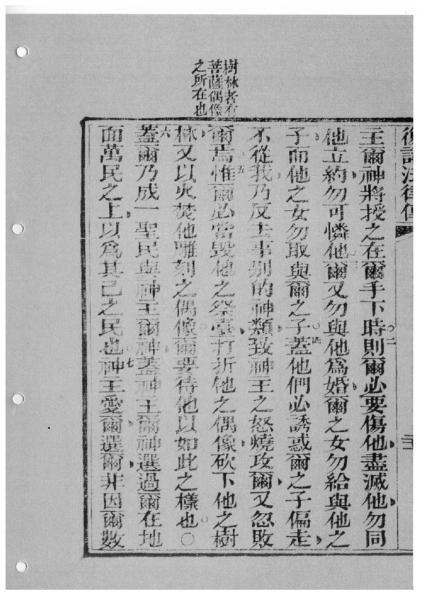 樹林者有
菩薩偶像
之所在也
復講法律傳
主爾神將授之在爾手下時則爾必要傷他盡滅他勿同
他立約勿可憐他爾又勿與他爲婚爾之女勿給與他之
子而他之女勿取與爾之子蓋他們必誘惑爾之子偏走
不從我乃反去事別的神類致神主之怒燒攻爾又忽敗
爾焉惟爾必當毀他之祭臺打折他之偶像砍下他之樹
林又以火焚他雕刻之偶像爾要待他以如此之樣也○
蓋爾乃成一聖民與神主爾神蓋神主爾神選過爾在地
面萬民之上以爲其己之民也神主愛爾選爾非因爾數